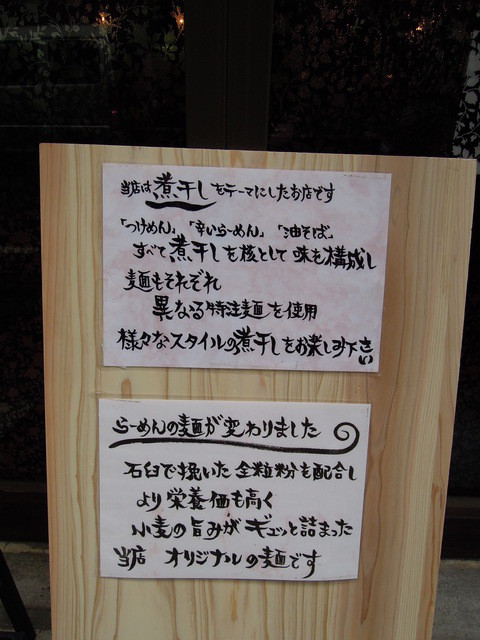 当店は煮干しをテーマにしたお店です
「つけめん」「辛いらーめん」「油そば」
すべて煮干しを核として味を構成し
麺もそれぞれ
異なる特注麺を使用
様々なスタイルの煮干しをお楽しみ下さい
らーめんの麺が変わりました
石臼で挽いた全粒粉を配合し
より栄養価も高く
小麦の旨みがギュッと詰まった
当店 オリジナルの麺です